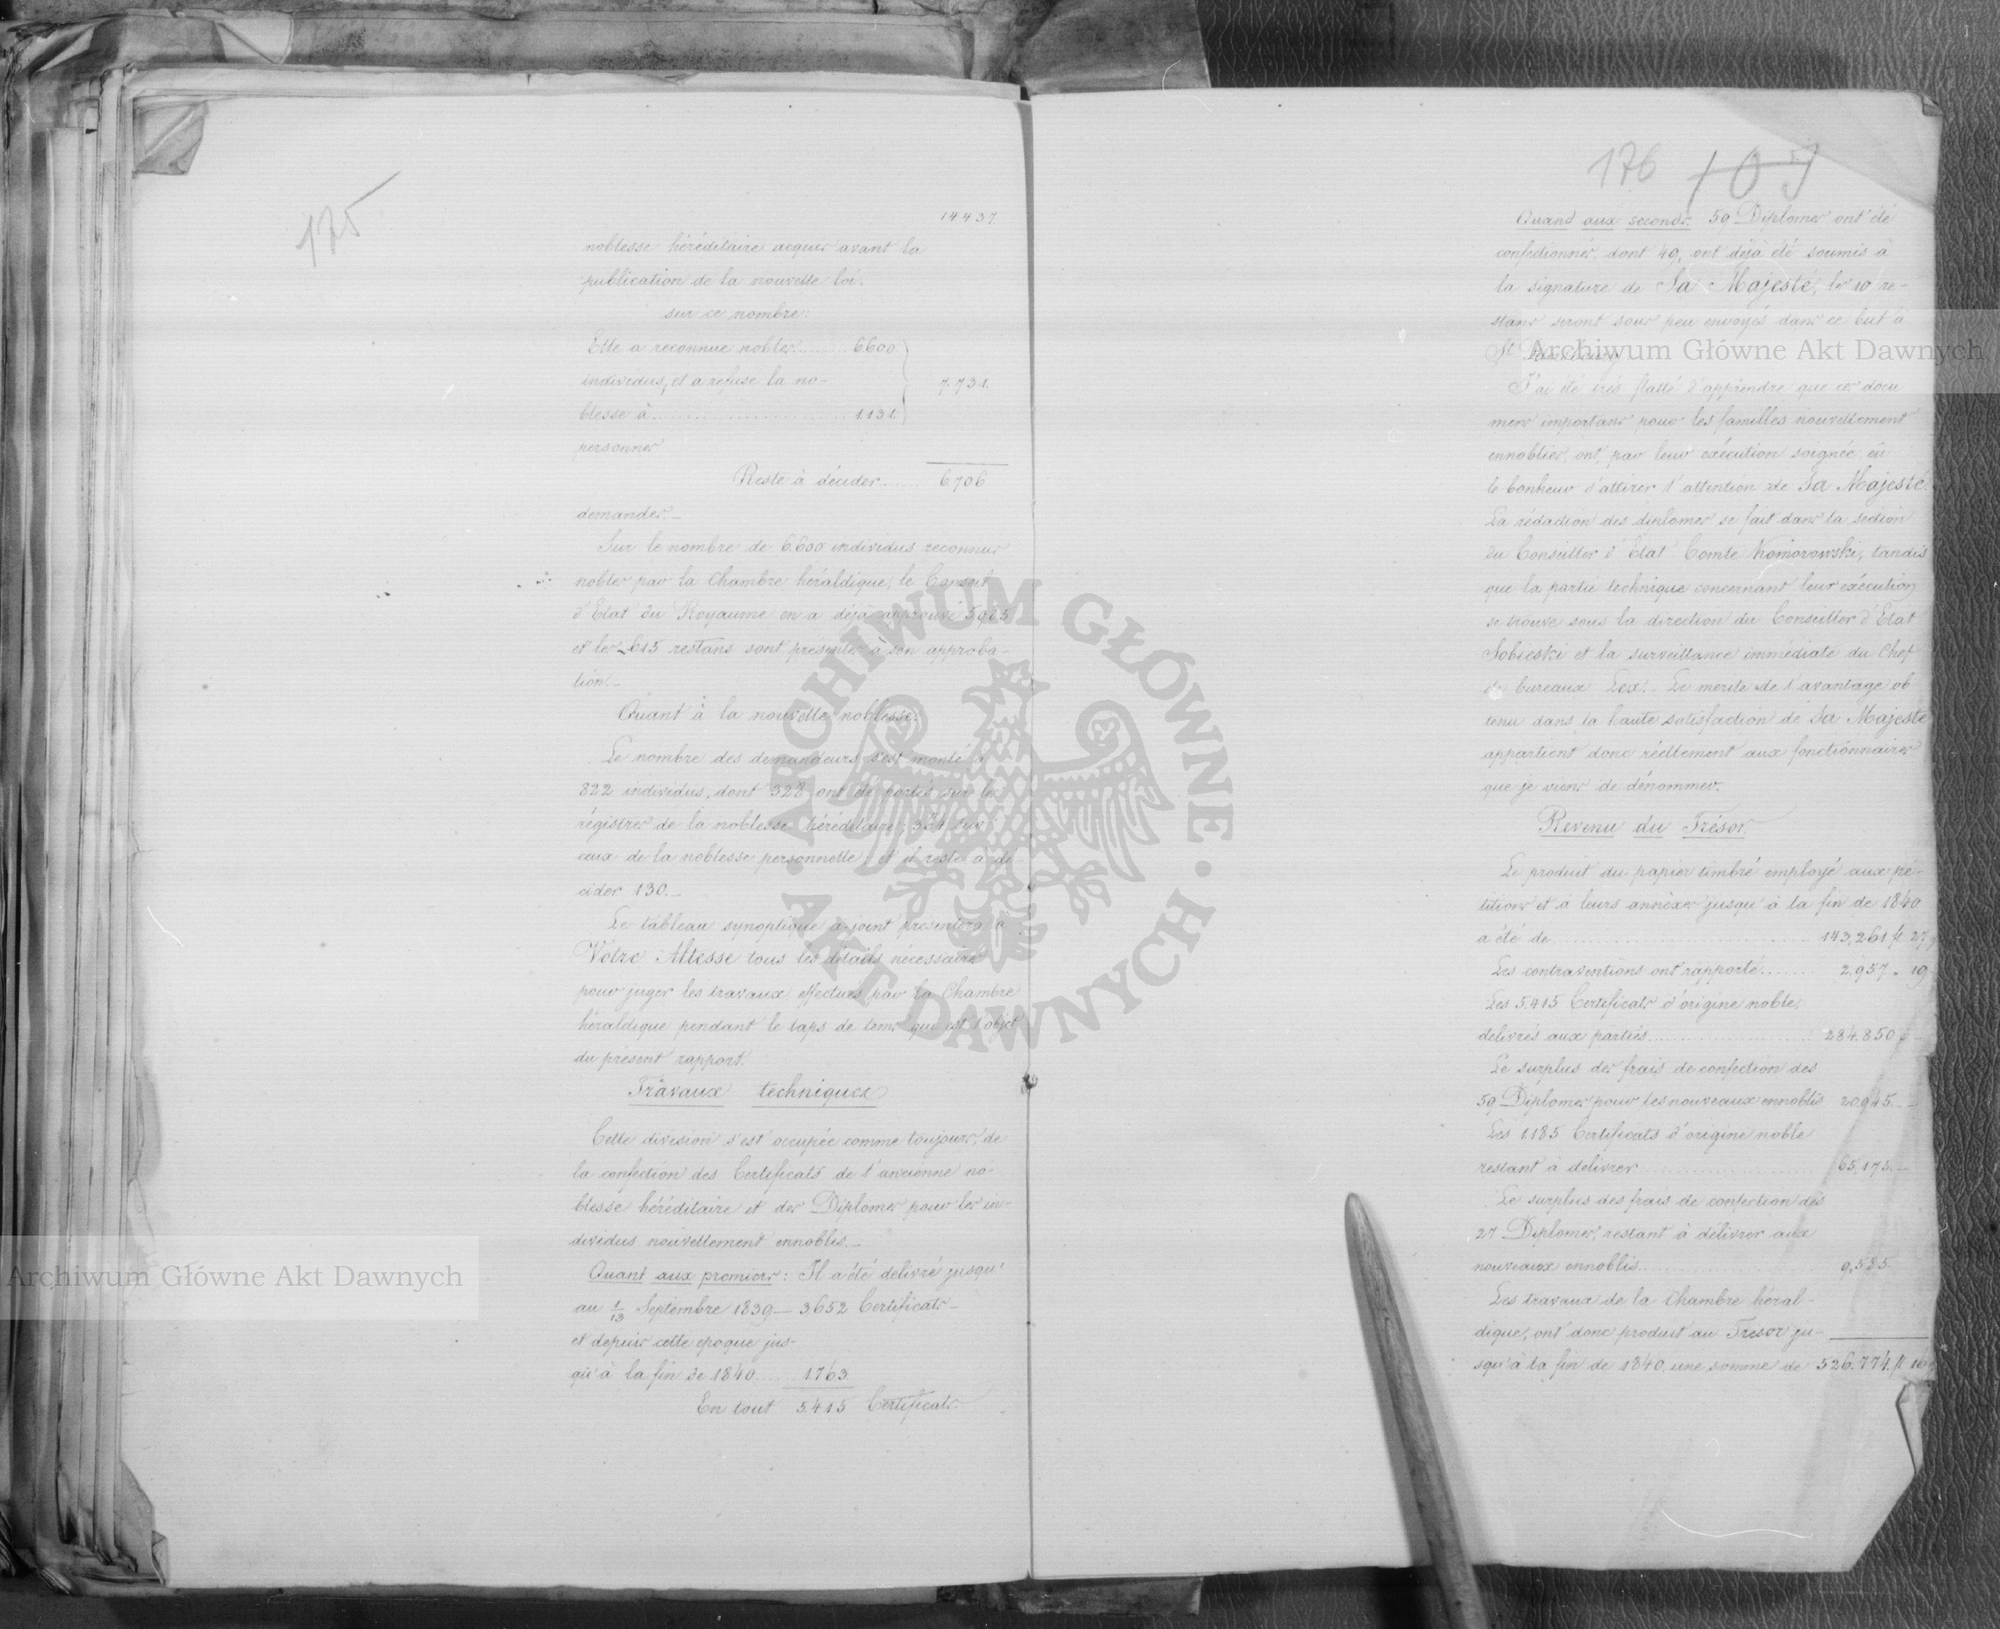 175
14.437
noblesse héréditaire acquis avant la
publication de la nouvelle loi.
sur ce nombre:
Elle a reconnue nobles..... 6600
individus, et a refusé la no-
7.731.
blesse à ........................ 1.131.
personnes
Reste à décider....... 6706
demandes.—
Sur le nombre de 6.600 individus reconnus
nobles par la Chambre héraldique, le Conseil
d'Etat du Royaume en a déjà approuvé 5985
et les 615 restans sont présentés à son approba-
tion.—
Quant à la nouvelle noblesse:
Le nombre des demandeurs s'est monté à
822 individus, dont 328 ont été portés sur les
régistres de la noblesse héréditaire; 364 sur
ceux de la noblesse personnelle; et il reste à dé-
cider 130.—
Le tableau synoptique a-joint présentera à
Votre Altesse tous les détails nécessaires
pour juger les travaux effectués par la Chambre
héraldique pendant le laps de tems qui est l'objet
du présent rapport.
Travaux techniques
Cette division s'est occupée comme toujours, de
la confection des Certificats de l'ancienne no-
blesse héréditaire et des Diplomes pour les in-
dividus nouvellement ennoblis.—
Quant aux premiers: Il a été délivré jusqu'
au 1/13 Septembre 1839 — 3652 Certificats—
et depuis cette epoque jus-
qu'à la fin de 1840..... 1763.
En tout 5.415 Certificats.
176 105
Quand aux seconds. 59 Diplomes ont été
confectionnés, dont 49, ont déjà été soumis à
la signature de Sa Majesté, les 10 re-
stans seront sous peu envoyés dans ce but à
St Pétersbourg.
J'ai été très flatté d'apprendre que ces docu
mens importans pour les familles nouvellement
ennoblies, ont, par leur exécution soignée, eû
le bonheur d'attirer l'attention de Sa Majesté.
La rédaction des diplomes se fait dans la section
du Conseiller d'Etat Comte Komorowski, tandis
que la partie technique concernant leur exécution
se trouve sous la direction du Conseiller d'Etat
Sobieski et la surveillance immédiate du Chef
de bureaux Lex. Le mérite de l'avantage ob
tenu dans la haute satisfaction de Sa Majesté
appartient donc réellement aux fonctionnaires
que je viens de dénommer.
Revenu du Trésor.
Le produit du papier timbré employé aux pé-
titions et à leurs annéxes jusqu'à la fin de 1840
a été de .............................. 143,261 fl 27
Les contraventions ont rapporté....... 2.957 „ 19
Les 5.415 Certificats d'origine noble,
delivrés aux parties.................... 284.850
Le surplus des frais de confection des
59 Diplomes pour les nouveaux ennoblis 20945.—
Les 1185 Certificats d'origine noble
restant à délivrer .................... 65,175.—
Le surplus des frais de confection des
27 Diplomes, restant à délivrer aux
nouveaux ennoblis...................... 9,585.
Les travaux de la Chambre héral-
dique, ont donc produit au Tresor ju-
squ'à la fin de 1840, une somme de 526.774. fl 16
Archiwum Główne Akt Dawnych
Archiwum Główne Akt Dawnych
ARCHIWUM GŁÓWNE AKT DAWNYCH